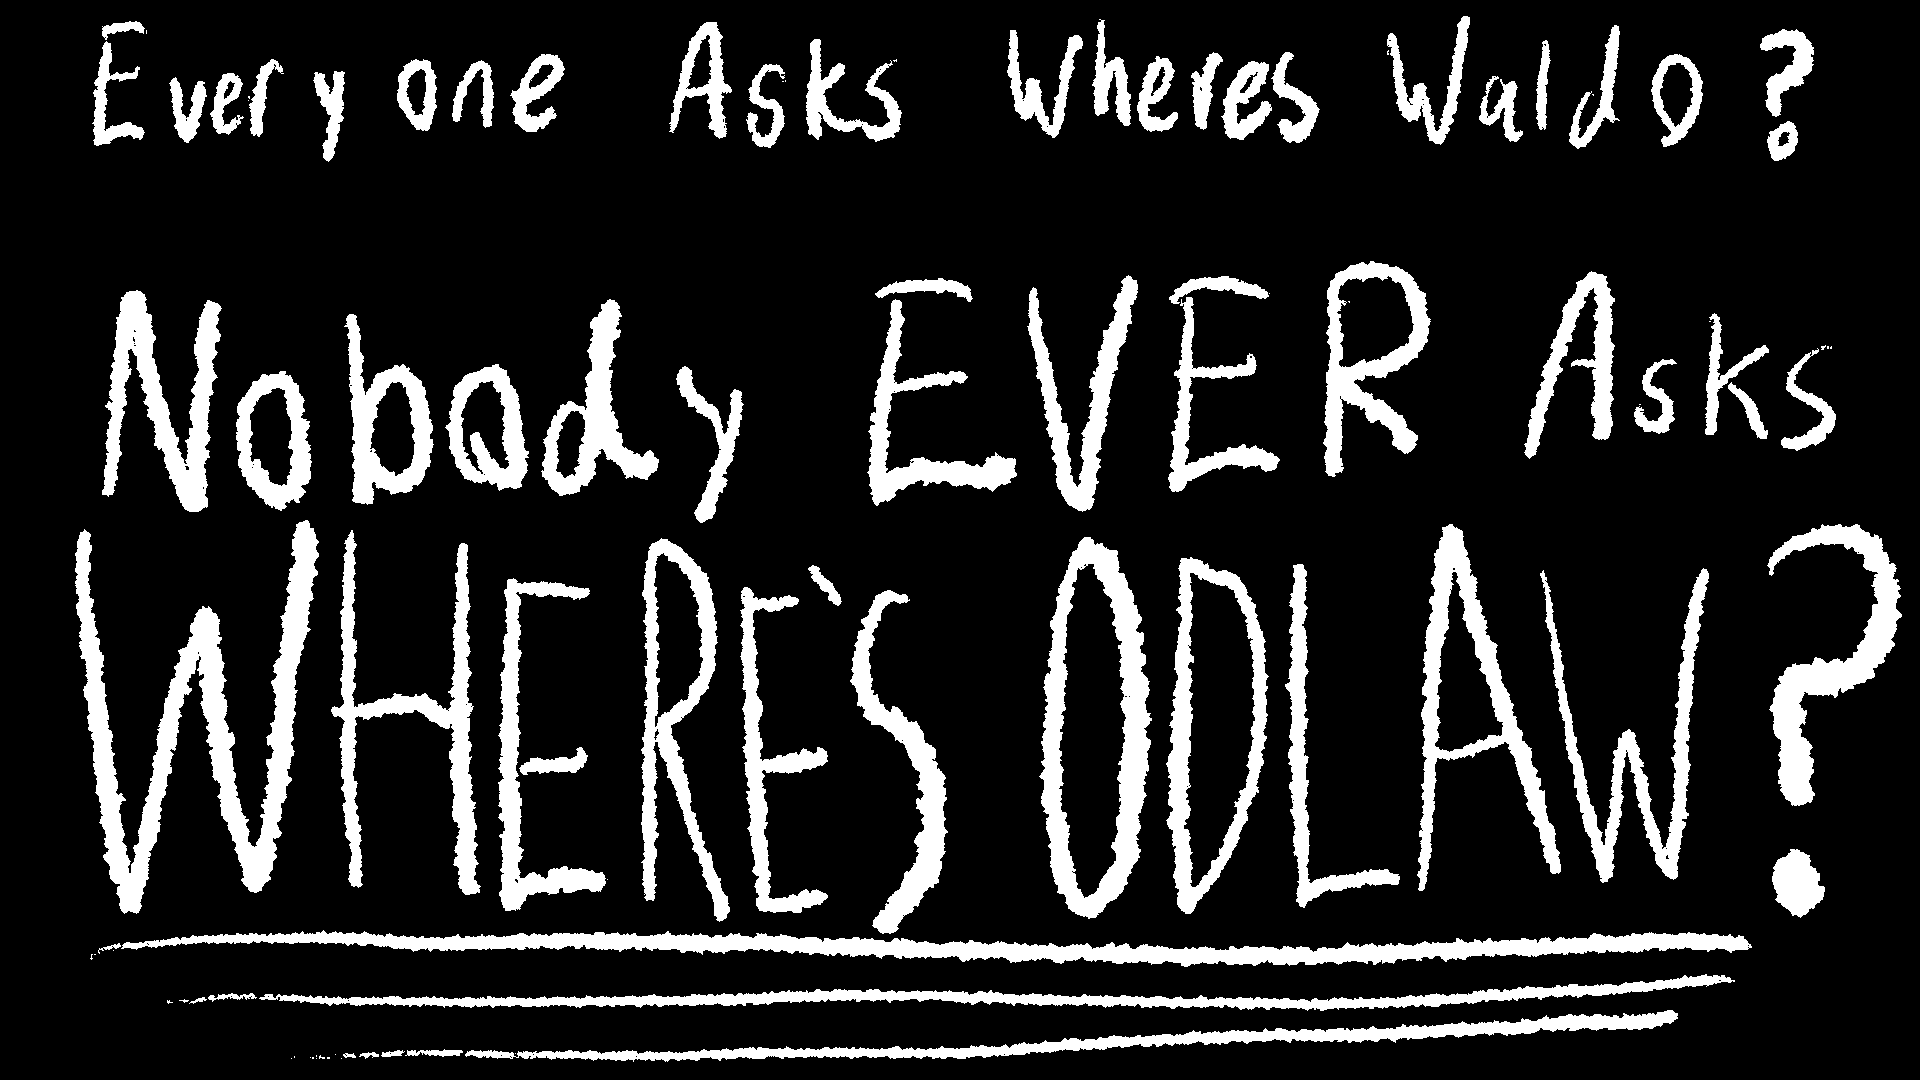 Everyone Asks Wheres Waldo?
Nobody EVER Asks
WHERE'S ODLAW?